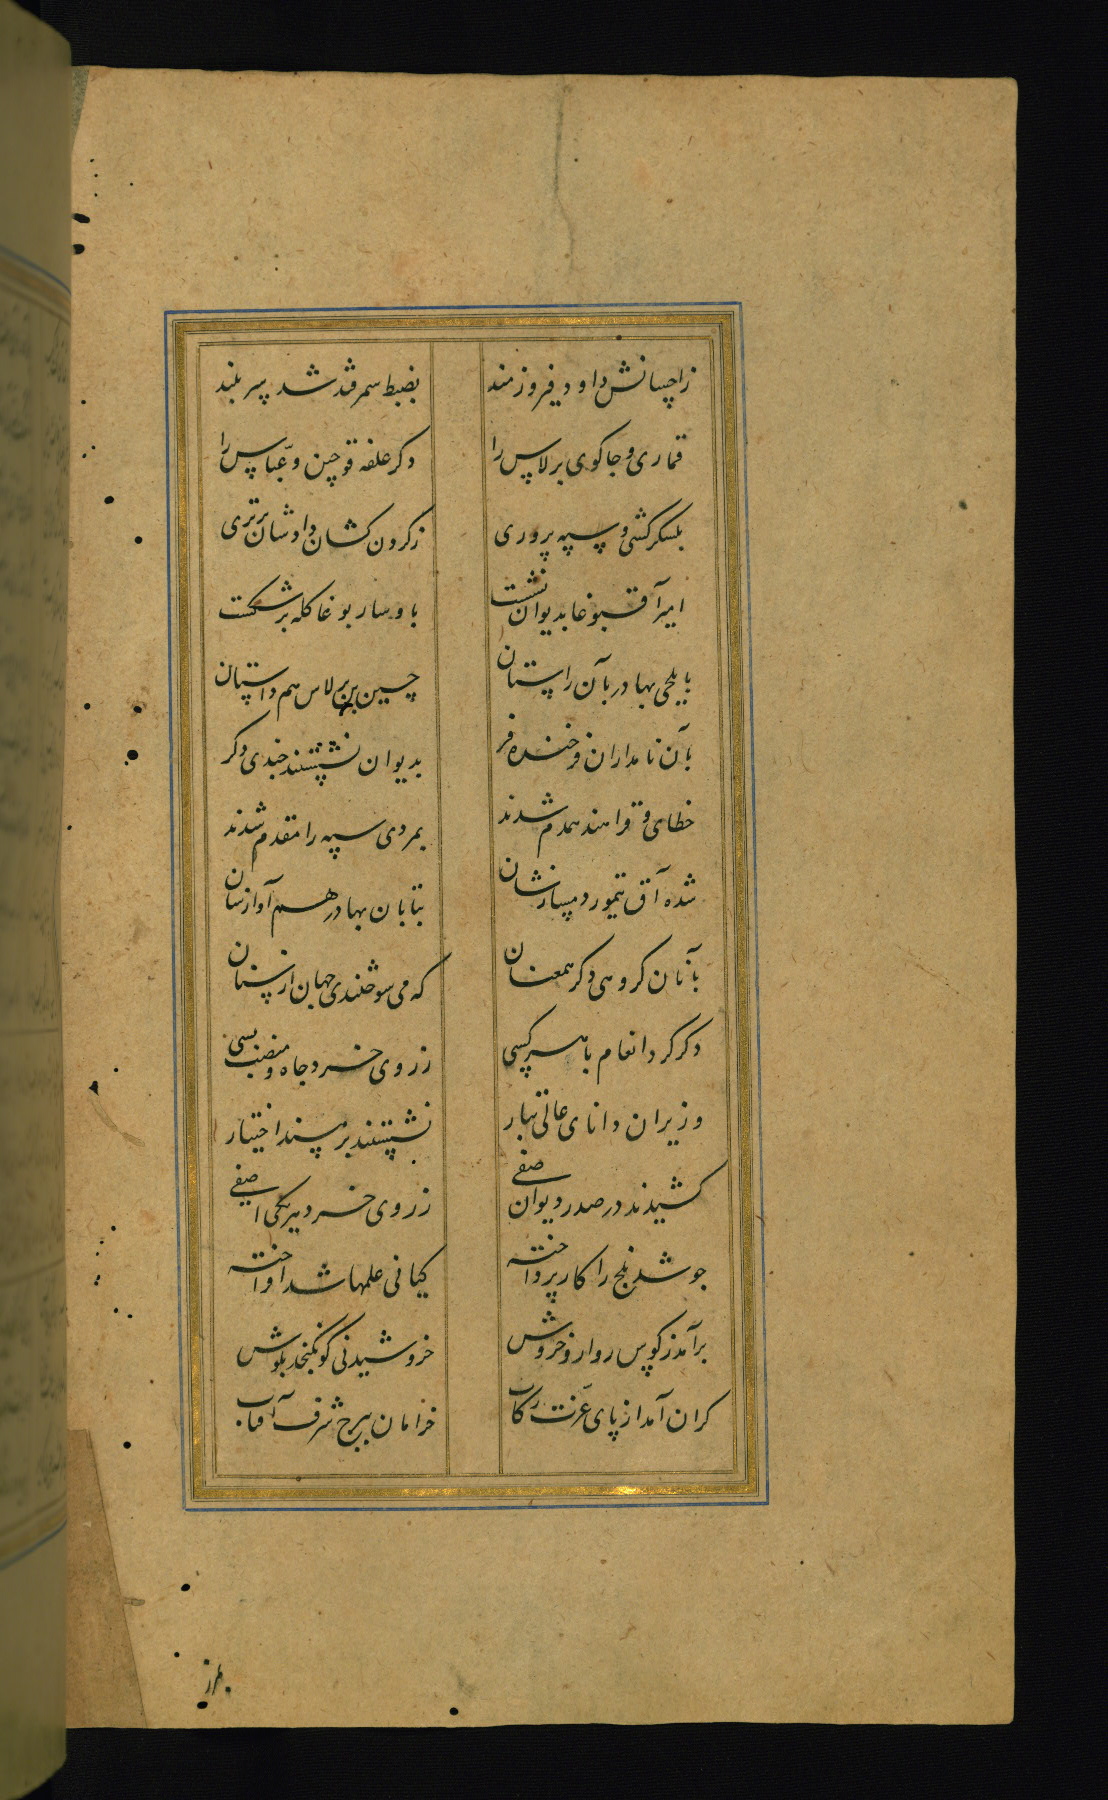 زاحسانش داود فیروزمند بضبط سمرقند شد سر بلند
قماری و جاکوی برلاس را دکر علفه قوچین و عبّاس را
بلسکرکشی و سپه پروری زکردن کشان دادشان برتری
امیر آقبوغا بدیوان نشست باو سار بوغا کله بر شکست
بایلچی بهادر بآن راستان چسین برلاس هم داستان
بآن نامداران فرخنده فر بدیوان نشستند چندی دکر
خطای و قراهند همدم شدند بمردی سپه را مقدم شدند
شده آق تیمور دمسازشان بتابان بهادر هم آوازشان
بآنان کروهی دکر همعنان که می سوختندی جهان از سنان
دکر کرد انعام با هر کسی ز روی خرد جاه و منصب بسی
وزیران دانای عالی تبار نشستند بر مسند اختیار
کشیدند در صدر دیوان صفی ز روی خرد هر یکی آصفی
چو شد بلخ را کار پرداخته کیانی علمها شد افراخته
برآمد ز کوس روارو خروش خروشیدنی کو نکنجد بکوش
کران آمد از پای عزّت رکاب خرامان ببرج شرف آفتاب